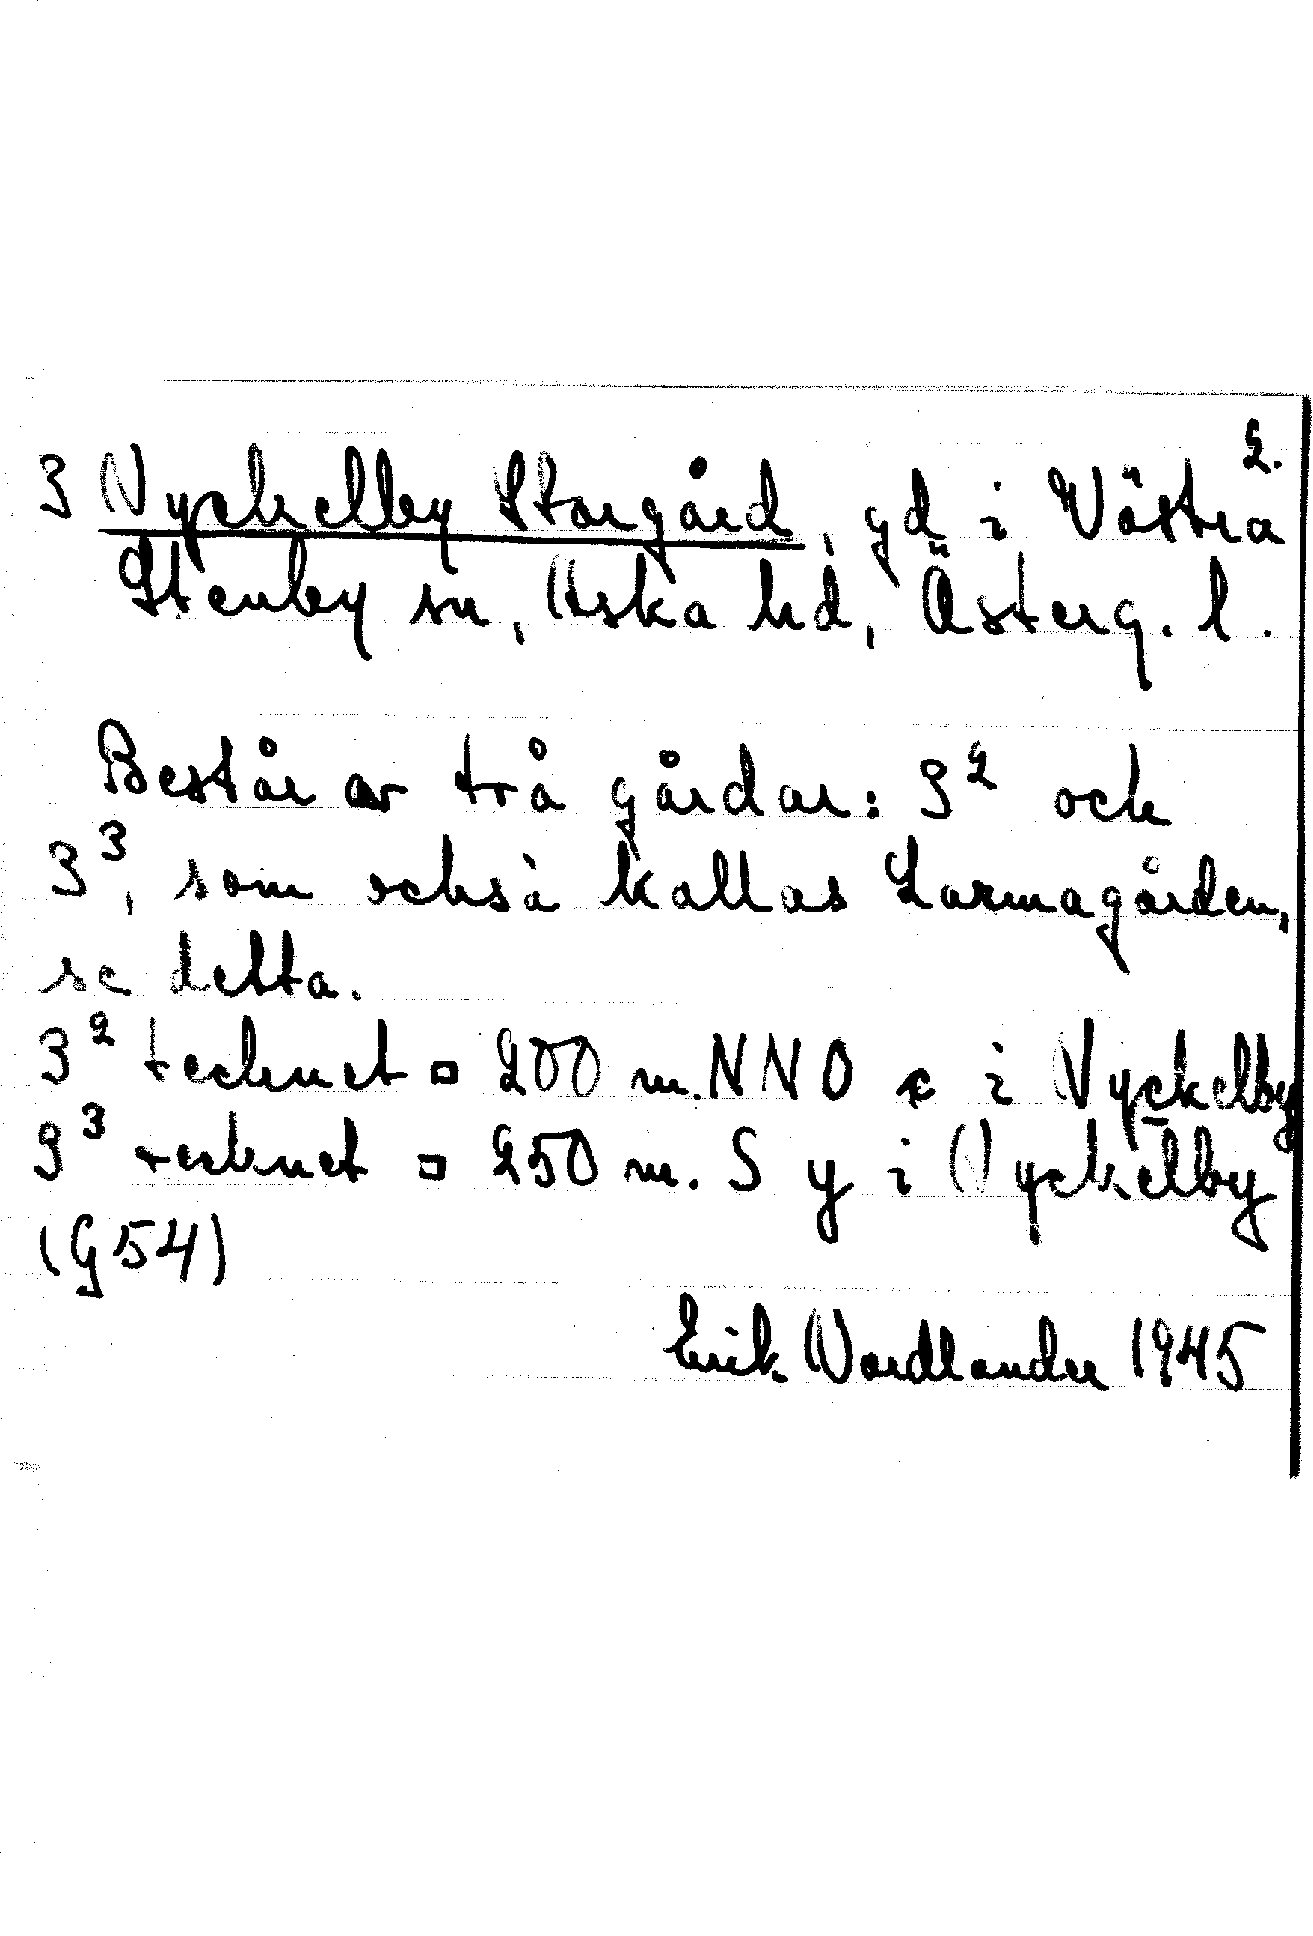 2.
3 Nyckelby Storgård, gd i Västra
Stenby sn, Aska hd, Österg. l.
Består av två gårdar: 3² och
3³, som också kallas Larmagården,
se detta.
3² tecknet □ 200 m. NNO c i Nyckelby
3³ tecknet □ 250 m. S y i Nyckelby
(G54)
Erik Nordlander 1945